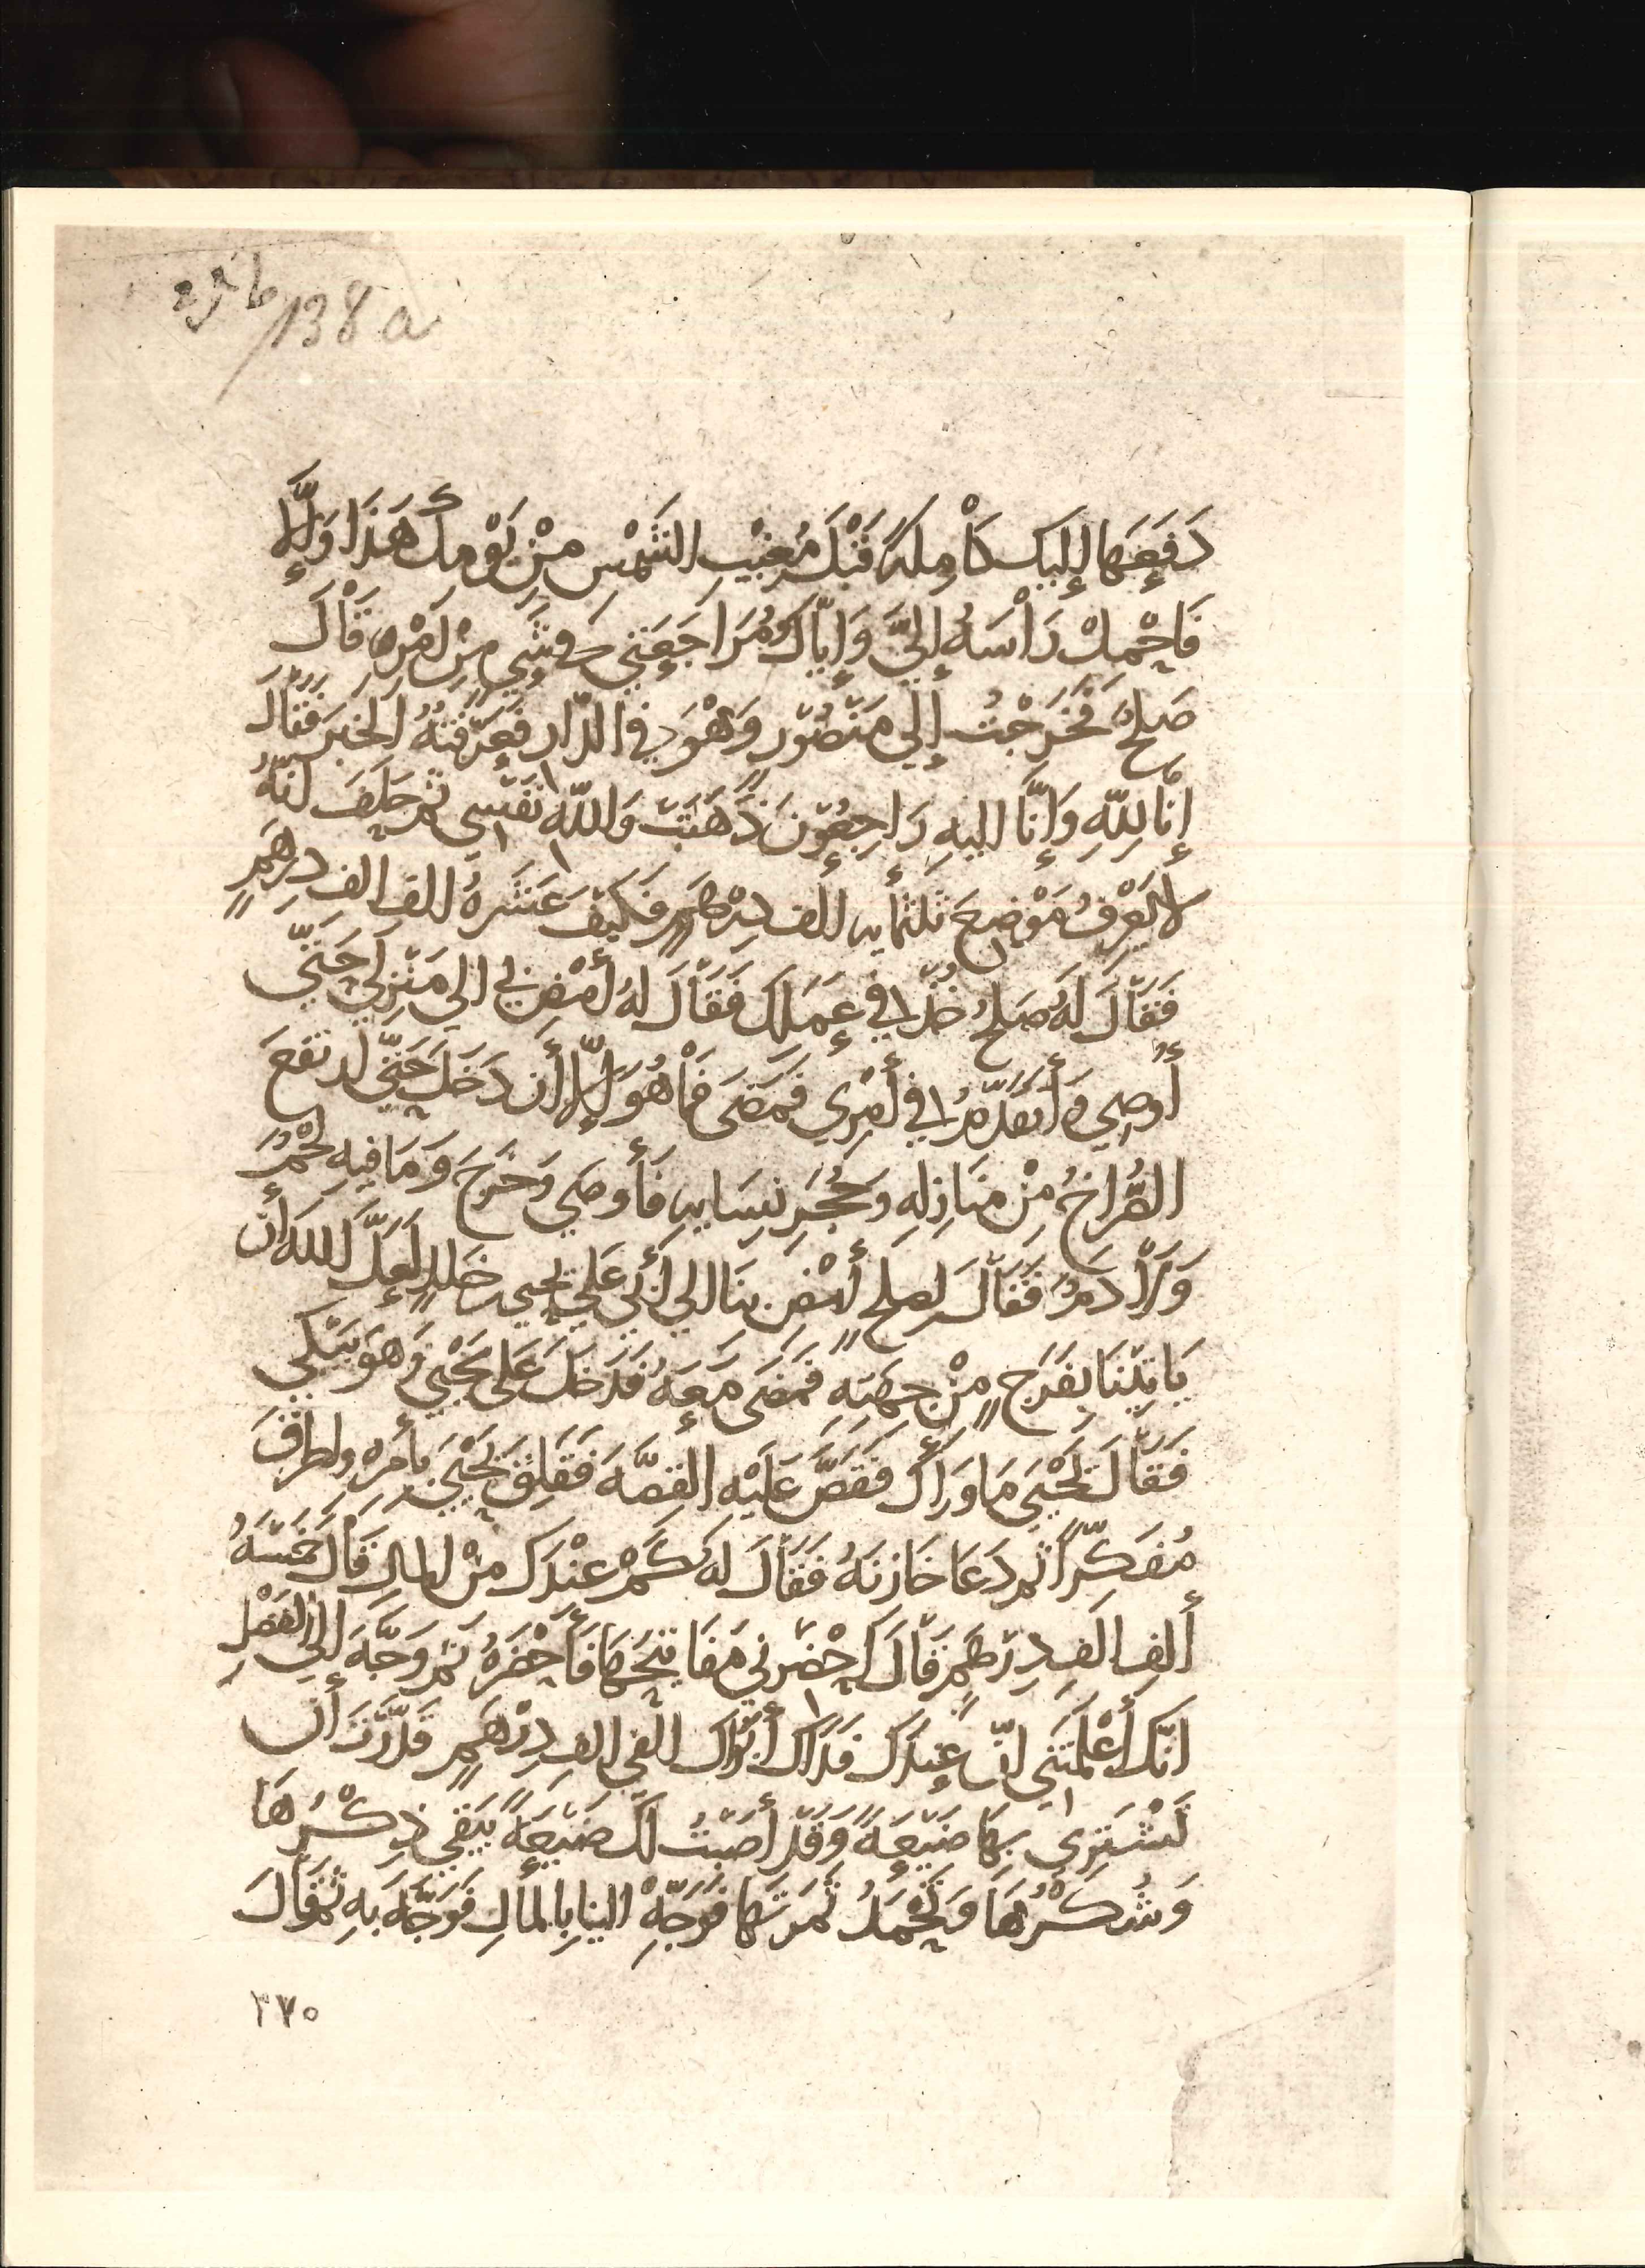 138a
دَفَعَها إليك كَامِلَةً قَبْلَ مَغِيْبِ الشَّمْسِ مِنْ يَوْمِكَ هَذَا وَإِلَّا
فَاحْمِلْ رَأْسَهُ إِلَيَّ وَإِيَّاكَ وَمُرَاجَعَتِي في شَيءٍ مِنْ أَمْرِهِ قَالَ
صَلحٌ فَخَرَجْتُ إلَى مَنْصُوْرٍ وَهْوَ فِي الدَّارِ فَعَرَّفْتُهُ الخَبَرَ فَقَالَ
إِنَّا لِلّهِ وَإِنَّا إليهِ رَاجِعُوْنَ ذَهَبَتْ وَاللّهِ نَفْسِي ثُمَ حَلَفَ أَنَّهُ
لا يَعْرِفُ مَوْضِعَ ثلثمأيه ألف دِرْهَمٍ فَكَيْفَ عَشَرَةُ ألف الف دِرهَمٍ
فَقَالَ لَهُ صَلحٌ خُذْ فِي عَمَلِكَ فَقَالَ لَهُ أمْضِ بي الى مَنْزِلِي حَتَّى
أُوصِي وَأَتَقَدَّمُ فِي أَمْرِي فَمَضَى فَمَا هُوَ إِلَّا أَن دَخَلَ حَتَّى ارتفعَ
الصُّرَاخُ مِنْ مَنَازِلِهِ وَحُجَرِ نِسَايِهِ فَأوصَى وَخَرَجَ وَمَا فِيهِ لَحْمٌ
وَلَا دَمٌ فَقَالَ لصلحٍ أمْضِ بِنَا الي أَبِي عَلِي يحيى بن خلدٍ لَعَلَّ اللهَ أن
يَاتِيْنَا بِفَرَجٍ مِنْ جِهَتِهِ فَمَضَى مَعَهُ فَدَخَلَ عَلَى يَحْيَى وَهوَ يَبْكِي
فَقَالَ يَحْيَى مَا وَرَاكَ فَقَصَّ عَلَيْهِ القِصَّةَ فَقَلِقَ يَحْيَى بأَمرِهِ واطرَقَ
مُفَكِّراً ثم دَعَا خَازِنَهُ فَقَالَ لَهُ كَمْ عِنْدَكَ مِنْ المالِ قَالَ خَمْسَةُ
أَلف الف دِرْهَمٍ قَالَ احْضِرْنِي مَفَاتِيْحَهَا فَأَحْضَرَهُ ثم وَجَّهَ إلَى الفَضْلِ
انَّكَ أَعْلَمْتَنِي انَّ عِندَكَ فَدَاكَ أَبُوْكَ الفي الف دِرْهَمٍ قَدَّرْتَ أن
تَشْتَرِي بِهَا ضَيْعَةً وَقَدْ أَصَبْتُ لَكَ ضَيْعَةً يَبْقَى ذِكْرُهَا
وَشُكْرُهَا وَتَحْمَدُ ثَمَرَتَهَا فَوَجِّهْ الينا بِالمالِ فَوَجَّهَ بِهِ ثُمَّ قَالَ
٢٧٠